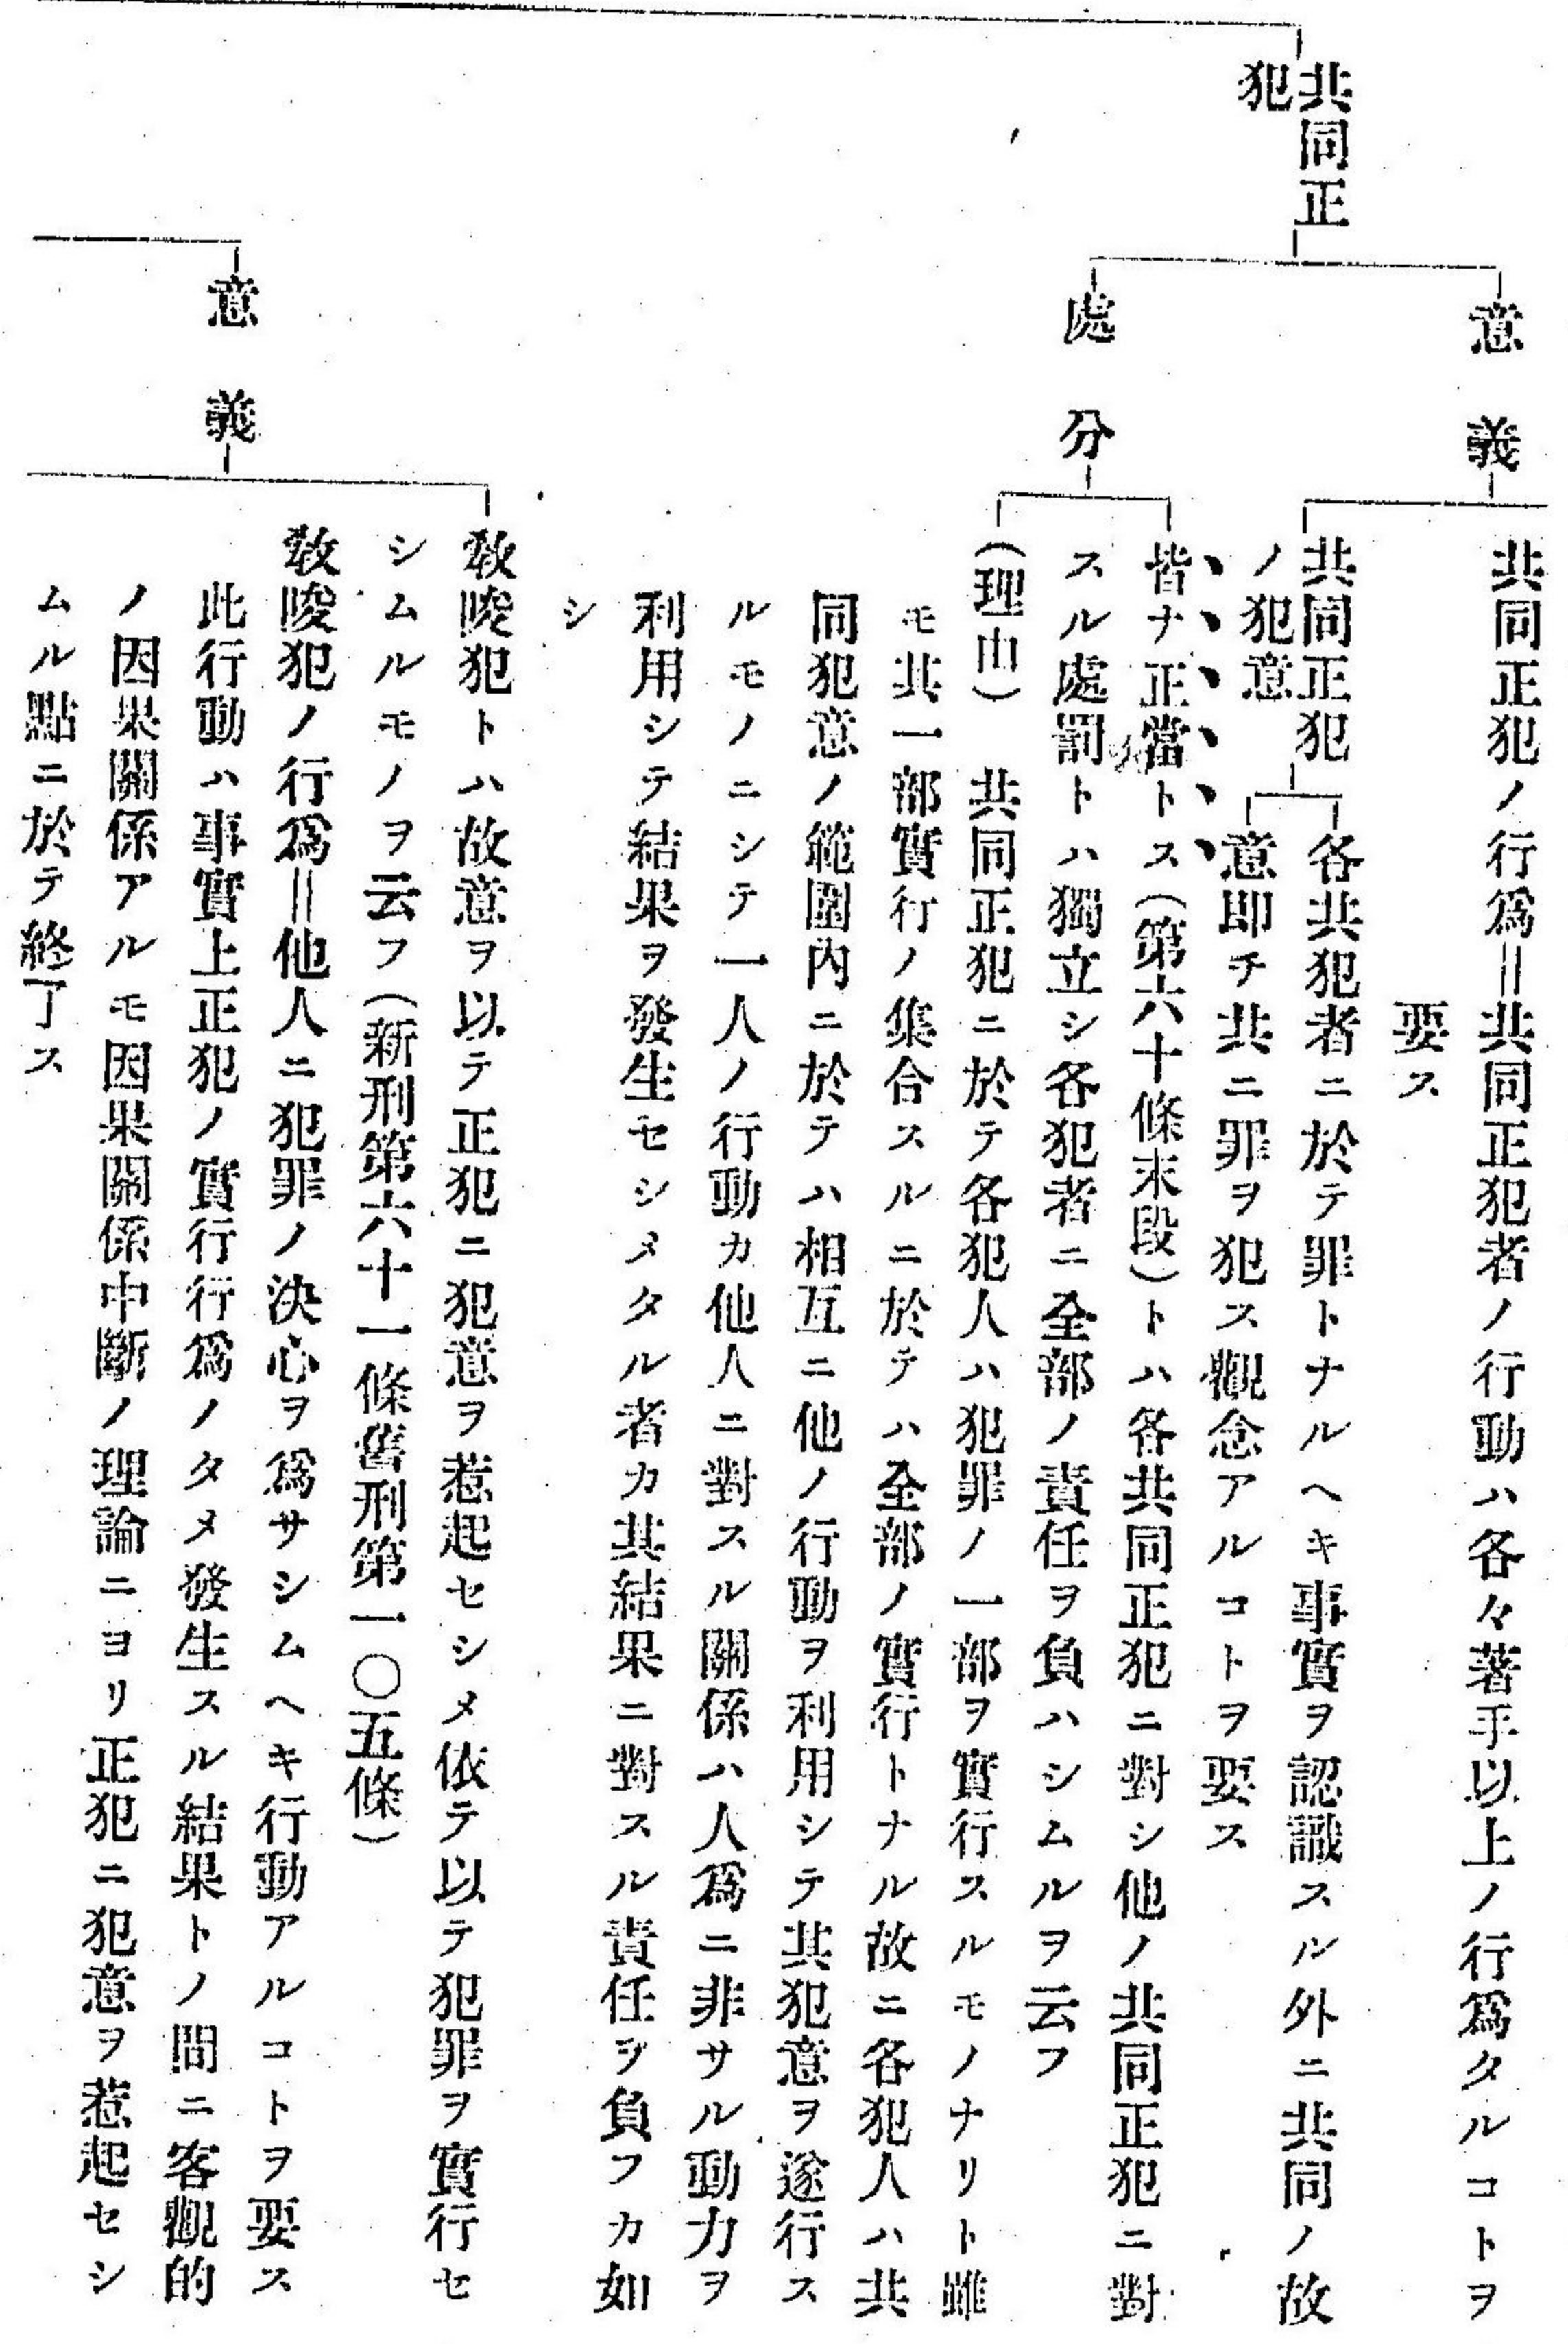 共同正
犯
意義
共同正犯ノ行爲＝共同正犯者ノ行動ハ各々著手以上ノ行爲タルコトヲ
要ス
共同正犯
ノ犯意
各共犯者ニ於テ罪トナルヘキ事實ヲ認識スル外ニ共同ノ故
意即チ共ニ罪ヲ犯ス觀念アルコトヲ要ス
處分
皆ナ正當トス（第六十條末段）トハ各共同正犯ニ對シ他ノ共同正犯ニ對
スル處罰トハ獨立シ各犯者ニ全部ノ責任ヲ負ハシムルヲ云フ
（理由）　共同正犯ニ於テ各犯人ハ犯罪ノ一部ヲ實行スルモノナリト雖
モ其一部實行ノ集合スルニ於テハ全部ノ實行トナル故ニ各犯人ハ共
同犯意ノ範圍内ニ於テハ相互ニ他ノ行動ヲ利用シテ其犯意ヲ遂行ス
ルモノニシテ一人ノ行動カ他人ニ對スル關係ハ人爲ニ非サル動力ヲ
利用シテ結果ヲ發生セシメタル者カ其結果ニ對スル責任ヲ負フカ如
シ
意義
敎唆犯トハ故意ヲ以テ正犯ニ犯意ヲ惹起セシメ依テ以テ犯罪ヲ實行セ
シムルモノヲ云フ（新刑第六十一條舊刑第一〇五條）
敎唆犯ノ行爲＝他人ニ犯罪ノ決心ヲ爲サシムヘキ行動アルコトヲ要ス
此行動ハ事實上正犯ノ實行行爲ノタメ發生スル結果トノ間ニ客觀的
ノ因果關係アルモ因果關係中斷ノ理論ニヨリ正犯ニ犯意ヲ惹起セシ
ムル點ニ於テ終了ス